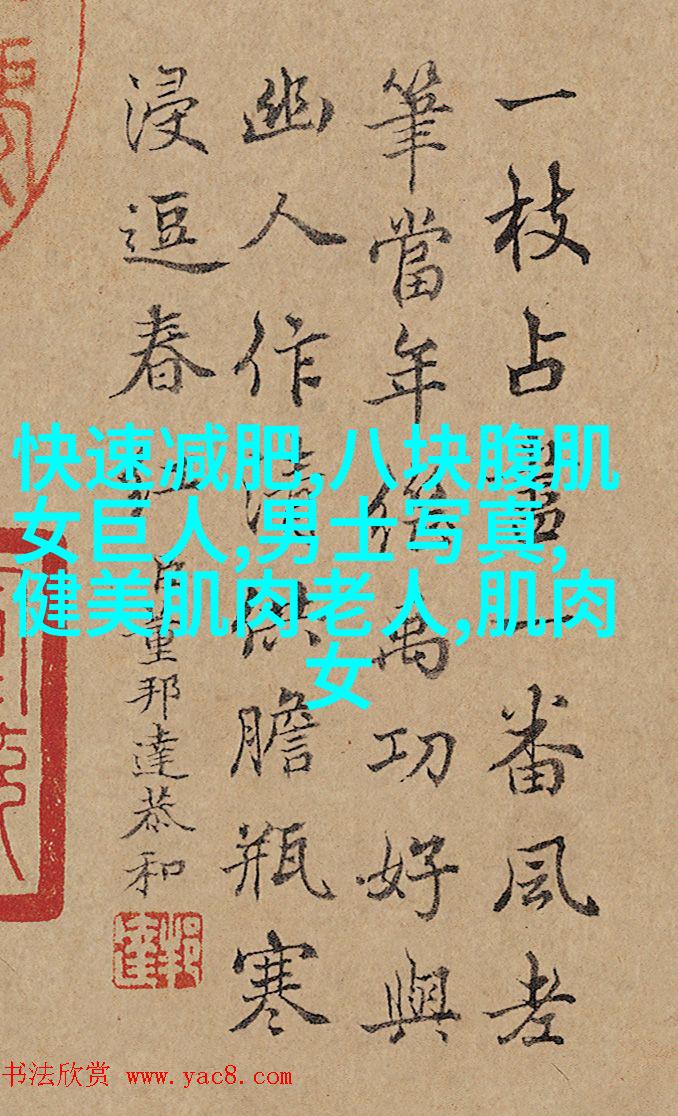 一枝占一番風老
筆當年萬功好與
幽人作清供膽瓶寒
浸逗春紅臣董邦達恭和
快速减肥,八块腹肌
女巨人,男士写真,
健美肌肉老人,肌肉
女
书法欣赏 www.yac8.com